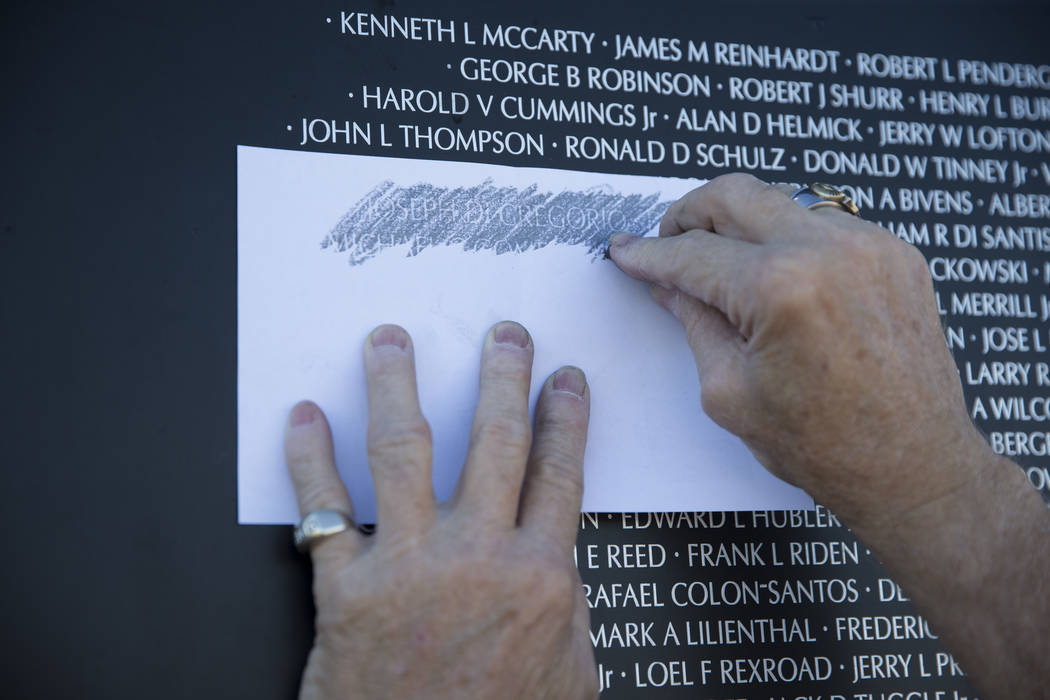 · KENNETH L MCCARTY · JAMES M REINHARDT · ROBERT L PENDERG
· GEORGE B ROBINSON · ROBERT J SHURR · HENRY L BUR
· HAROLD V CUMMINGS Jr · ALAN D HELMICK · JERRY W LOFTON
· JOHN L THOMPSON · RONALD D SCHULZ · DONALD W TINNEY Jr ·
JOSEPH DI GREGORIO ON A BIVENS · ALBER
MICHAEL IAM R DI SANTIS
CKOWSKI ·
L MERRILL J
N · JOSE L
LARRY R
A WILCO
BERGE
N · EDWARD L HUBLER
E REED · FRANK L RIDEN ·
RAFAEL COLON-SANTOS · DE
MARK A LILIENTHAL · FREDERIC
Jr · LOEL F REXROAD · JERRY L PR
JACK D TUGGLE